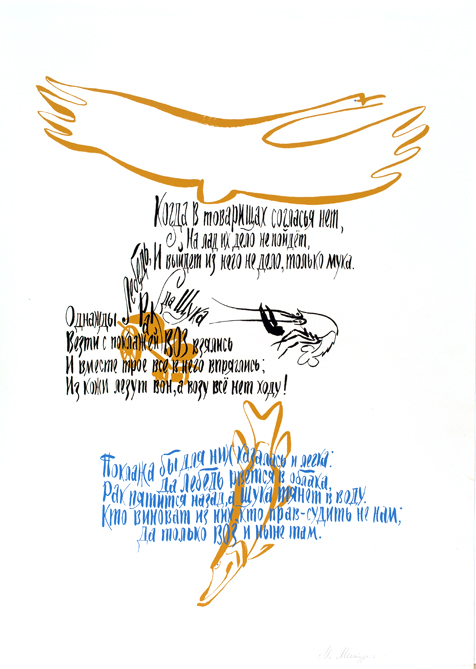 Когда в товарищах согласья нет,
На лад их дело не пойдёт,
И выйдет из него не дело, только мука.
Однажды Лебедь, Рак да Щука
Везти с поклажей воз взялись
И вместе трое все в него впряглись;
Из кожи лезут вон, а возу всё нет ходу!
Поклажа бы для них казалась и легка:
Да Лебедь рвётся в облака,
Рак пятится назад, а Щука тянет в воду.
Кто виноват из них, кто прав-судить не нам;
Да только воз и ныне там.